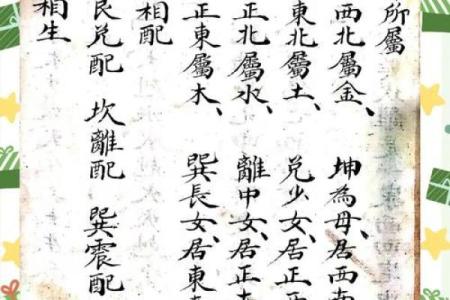 所屬
西北屬金、 坤為母、居西南
東北屬土、 兌少女、居正
正北屬水、 離中女、居正
正東屬木、 巽長女、居東
相配
艮兌配 坎離配 巽震配
相生